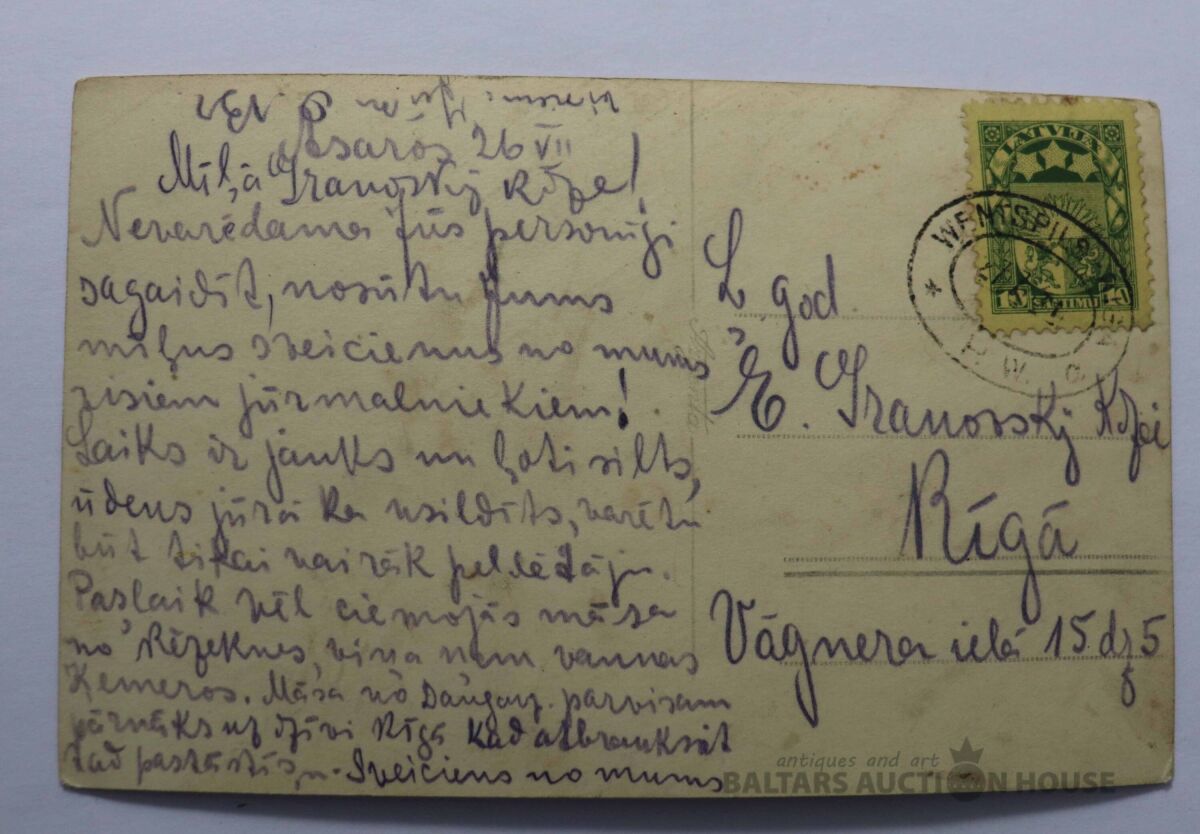 Asarōs 26 VII
Mīļā Granovskij kdze!
Nevarēdama Jūs personīgi
sagaidīt, nosūtu Jums
mīļus sveicienus no mums
visiem jūrmalniekiem!
Laiks ir jauks un ļoti silts,
ūdens jūrā ka usildīts, varētu
būt tikai vairāk peldētāju.
Paslaik vēl ciemojās māsa
no Rēzeknes, viņa nem vannas
Ķemeros. Māsa no Daugavp. parvisam
pārnāks uz dzīvi Rīgā Kad atbrauksāt
tad pastāstīs. Sveiciens no mums
L. god.
E. Granovskij Kdzei
Rīgā
Vāgnera ielā 15 dz 5
LATVIJA
10 SANTIMU 10
WENTSPILS
antiques and art
BALTARS AUCTION HOUSE